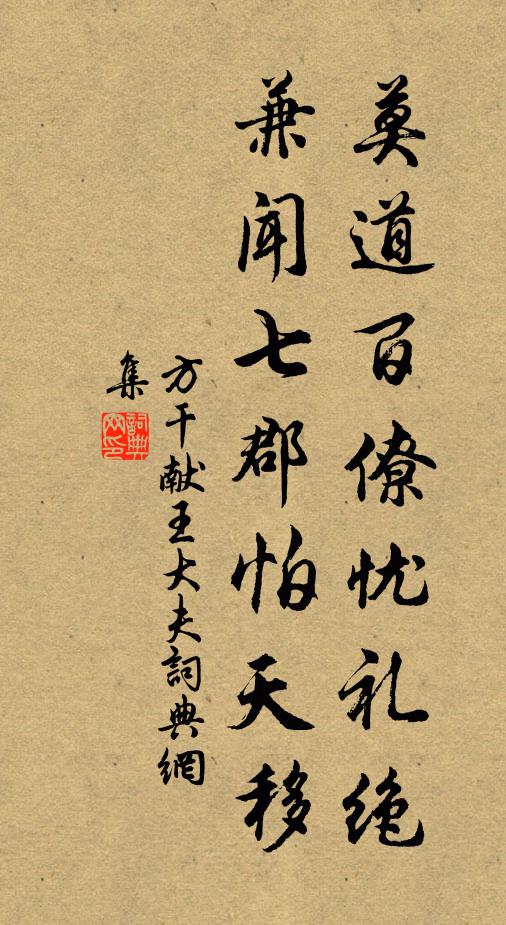 莫道百僚忧礼绝
兼闻七郡怕天移
方干献王大夫詞典網
集
詞典網印